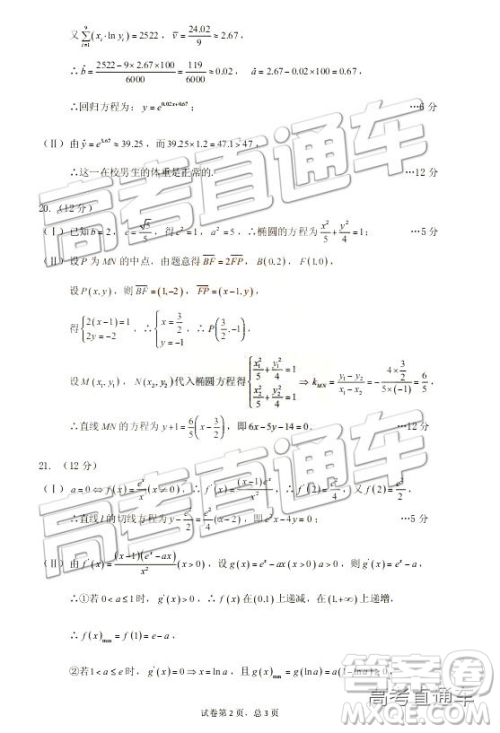 又∑(i=1→9)(xᵢ·ln yᵢ)=2522，v̄=24.02/9≈2.67，
∴b̂=(2522−9×2.67×100)/6000=119/6000≈0.02，â=2.67−0.02×100=0.67，
∴回归方程为：y=e^(0.02x+0.67)； …6 分
(Ⅱ) 由ŷ=e^3.67≈39.25，而39.25×1.2=47.1>47，
∴这一在校男生的体重是正常的. …12 分
20. (12 分)
(Ⅰ) 已知b=2，e=√5/5，得c²=1，a²=5，∴椭圆的方程为x²/5+y²/4=1； …5 分
(Ⅱ) 设P为MN的中点，由题意得BF=2FP，B(0,2)，F(1,0)，
设P(x,y)，则BF=(1,−2)，FP=(x−1,y)，
得{2(x−1)=1 2y=−2，∴{x=3/2 y=−1，∴P(3/2,−1)，
设M(x₁,y₁)，N(x₂,y₂)代入椭圆方程得{x₁²/5+y₁²/4=1 x₂²/5+y₂²/4=1 ⇒ k_MN=(y₁−y₂)/(x₁−x₂)=−(4×3/2)/(5×(−1))=6/5
∴直线MN的方程为y+1=6/5(x−3/2)，即6x−5y−14=0. …12 分
21. (12 分)
(Ⅰ) a=0⇔f(x)=eˣ/x(x≠0)，∴f'(x)=(x−1)eˣ/x²，∴f'(2)=e²/4，又f(2)=e²/2，
∴直线l的切线方程为y−e²/2=e²/4(x−2)，即e²x−4y=0； …5 分
(Ⅱ) 由f'(x)=(x−1)(eˣ−ax)/x²(x>0)，设g(x)=eˣ−ax(x>0)，则g'(x)=eˣ−a(x>0)，
∴①若0<a≤1时，g'(x)>0，∴f(x)在(0,1)上递减，在(1,+∞)上递增，
∴f(x)min=f(1)=e−a，
②若1<a≤e时，g'(x)=0⇒x=ln a，且g(x)min=g(ln a)=a(1−ln a)
试卷第 2 页，总 3 页
高考直通车
高考直通车
高考直通车